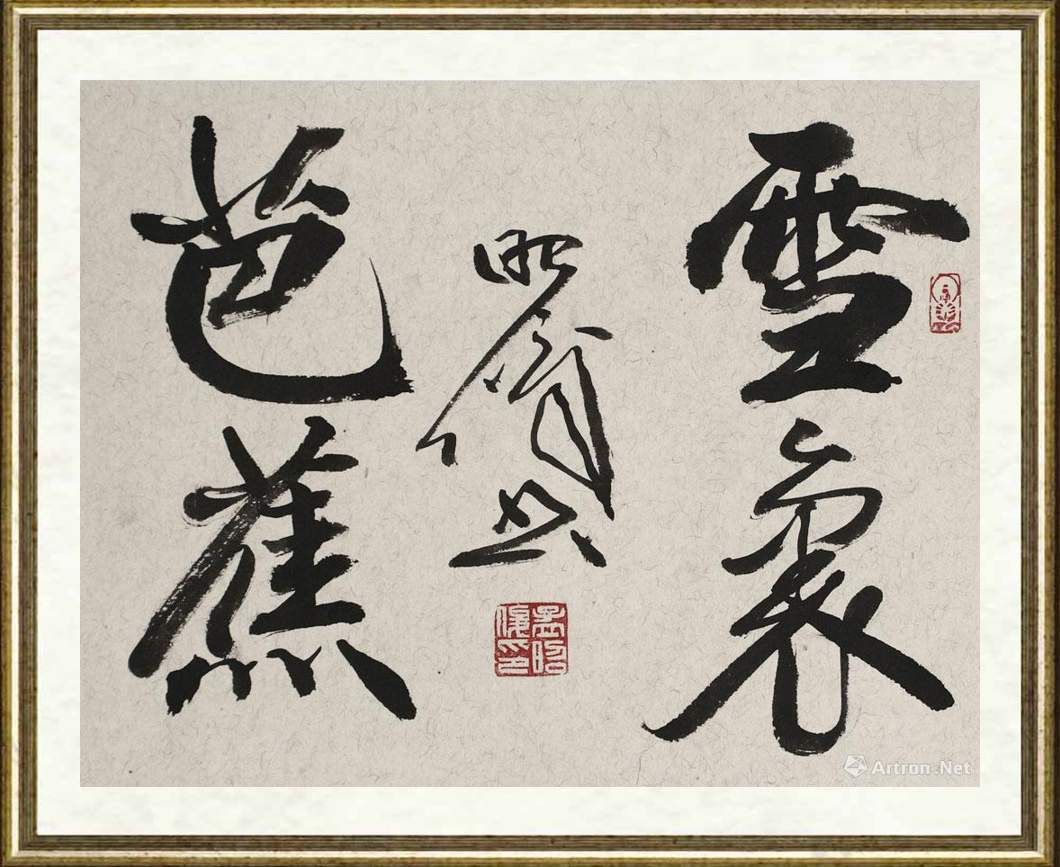 雪裏
芭蕉
孟昭
俊印
Artron.Net